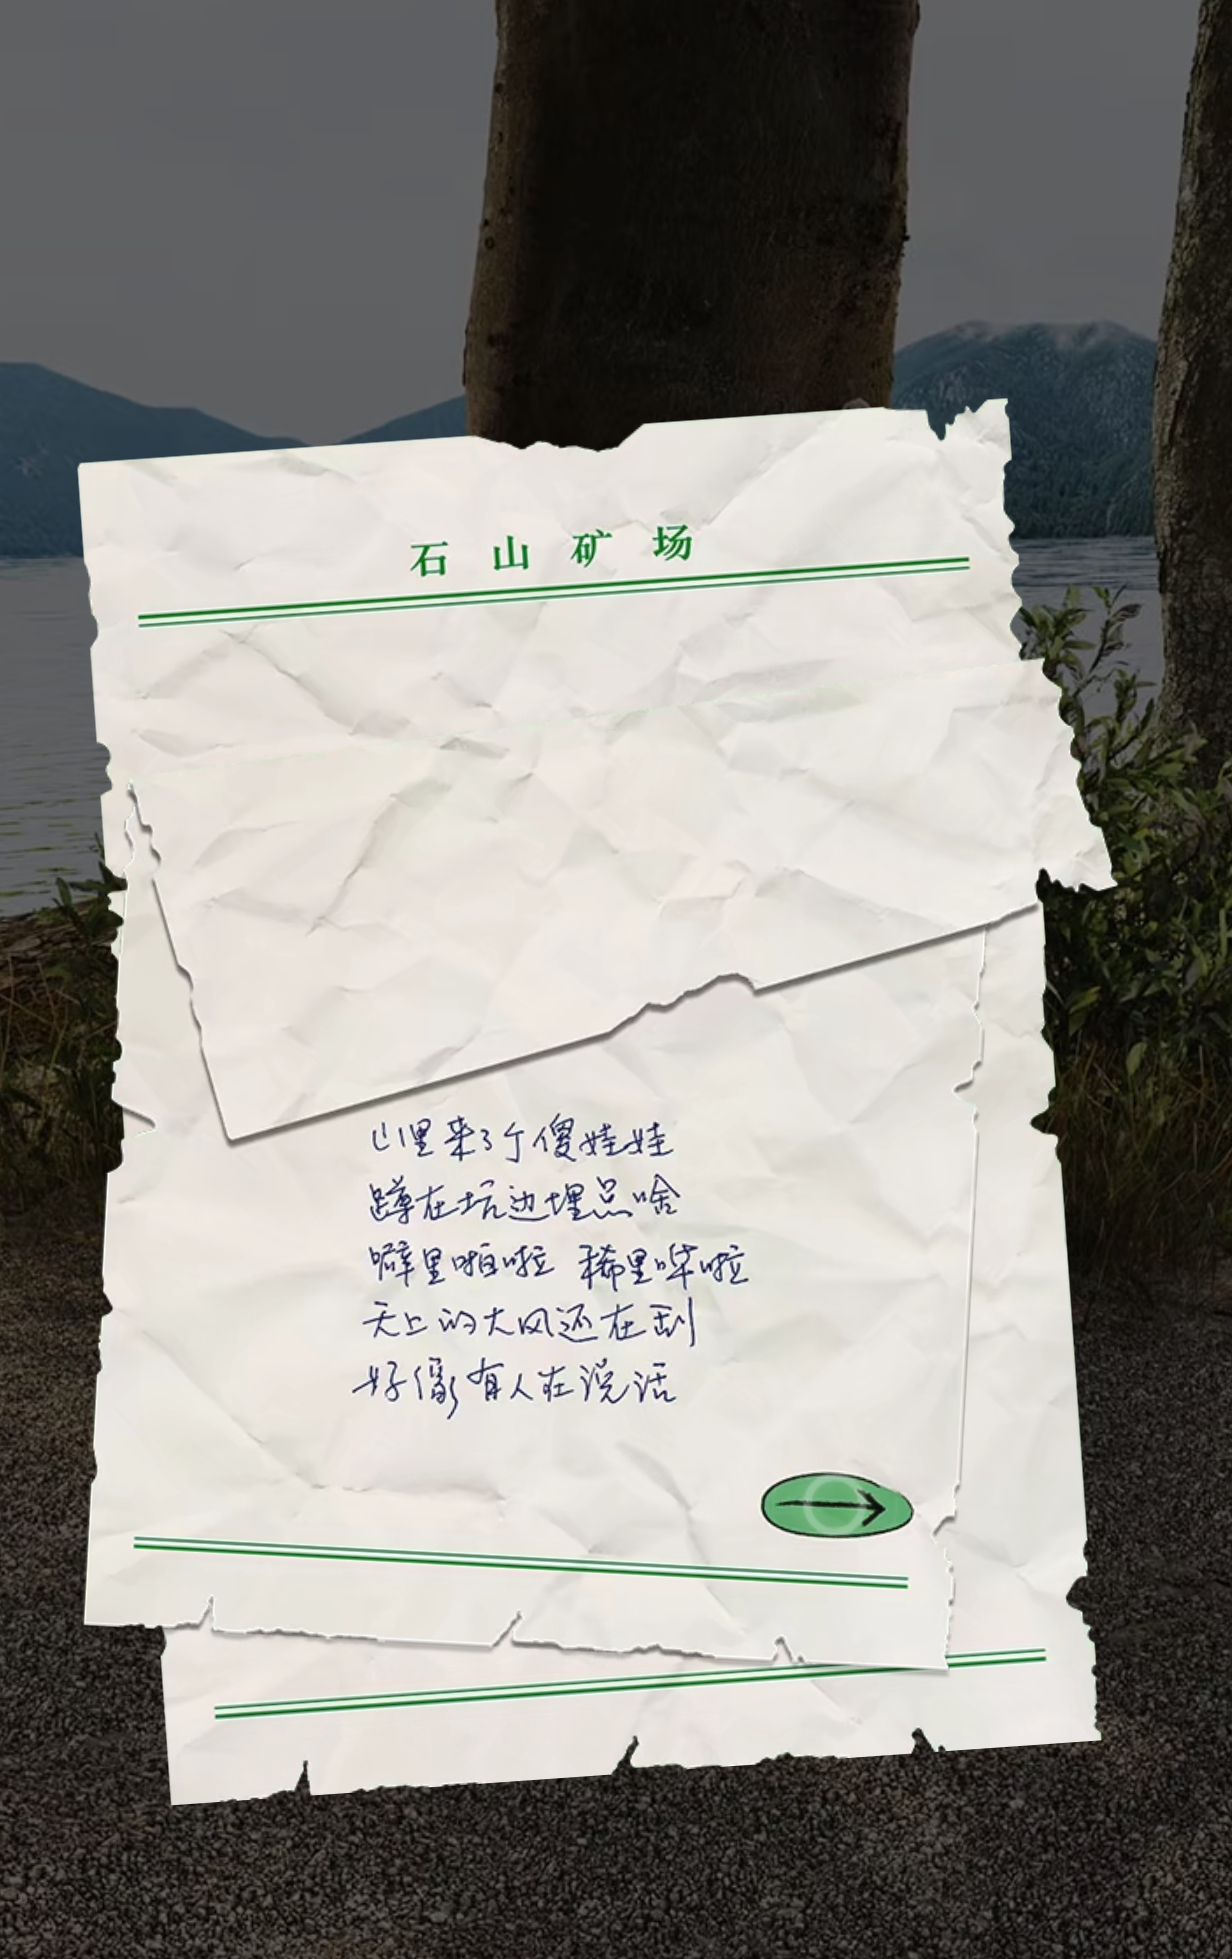 石山矿场
山里来了个傻娃娃
蹲在坑边埋点啥
噼里啪啦 稀里哗啦
天上的大风还在刮
好像有人在说话